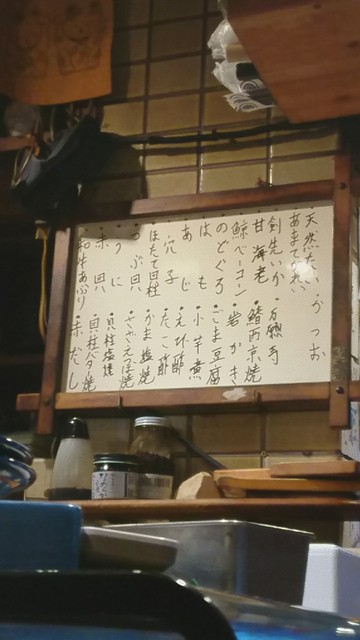 ・天然たい ・かつお
・あまてがれい
・剣先いか ・万願寺
・甘海老 ・鰆西京焼
・鯨ベーコン ・岩かき
・のどぐろ ・ごま豆腐
・はも ・小芋煮
・あじ ・えび酢
・穴子 ・たこ酢
・ほたて貝柱 ・うま塩焼
・つぶ貝 ・さざえつぼ焼
・うに ・貝柱塩焼
・赤貝 ・貝柱バター焼
・和牛あぶり ・赤だし